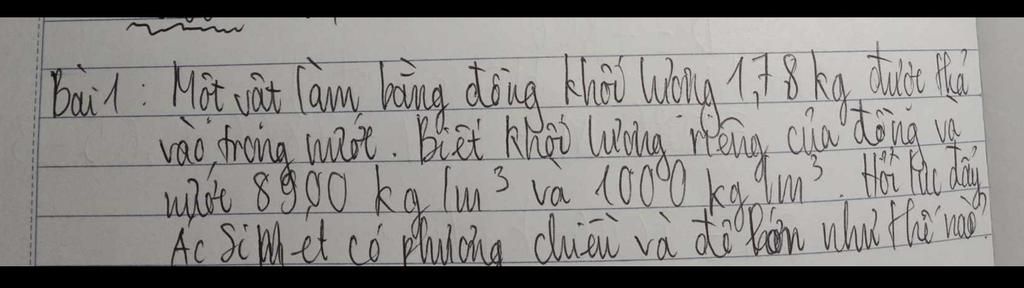 Bài 1: Một vật làm bằng đồng khối lượng 1,78 kg được thả
vào trong nước. Biết khối lượng riêng của đồng và
nước 8900 kg/m³ và 1000 kg/m³. Hỏi lực đẩy
Ác Si mét có phương chiều và độ lớn như thế nào